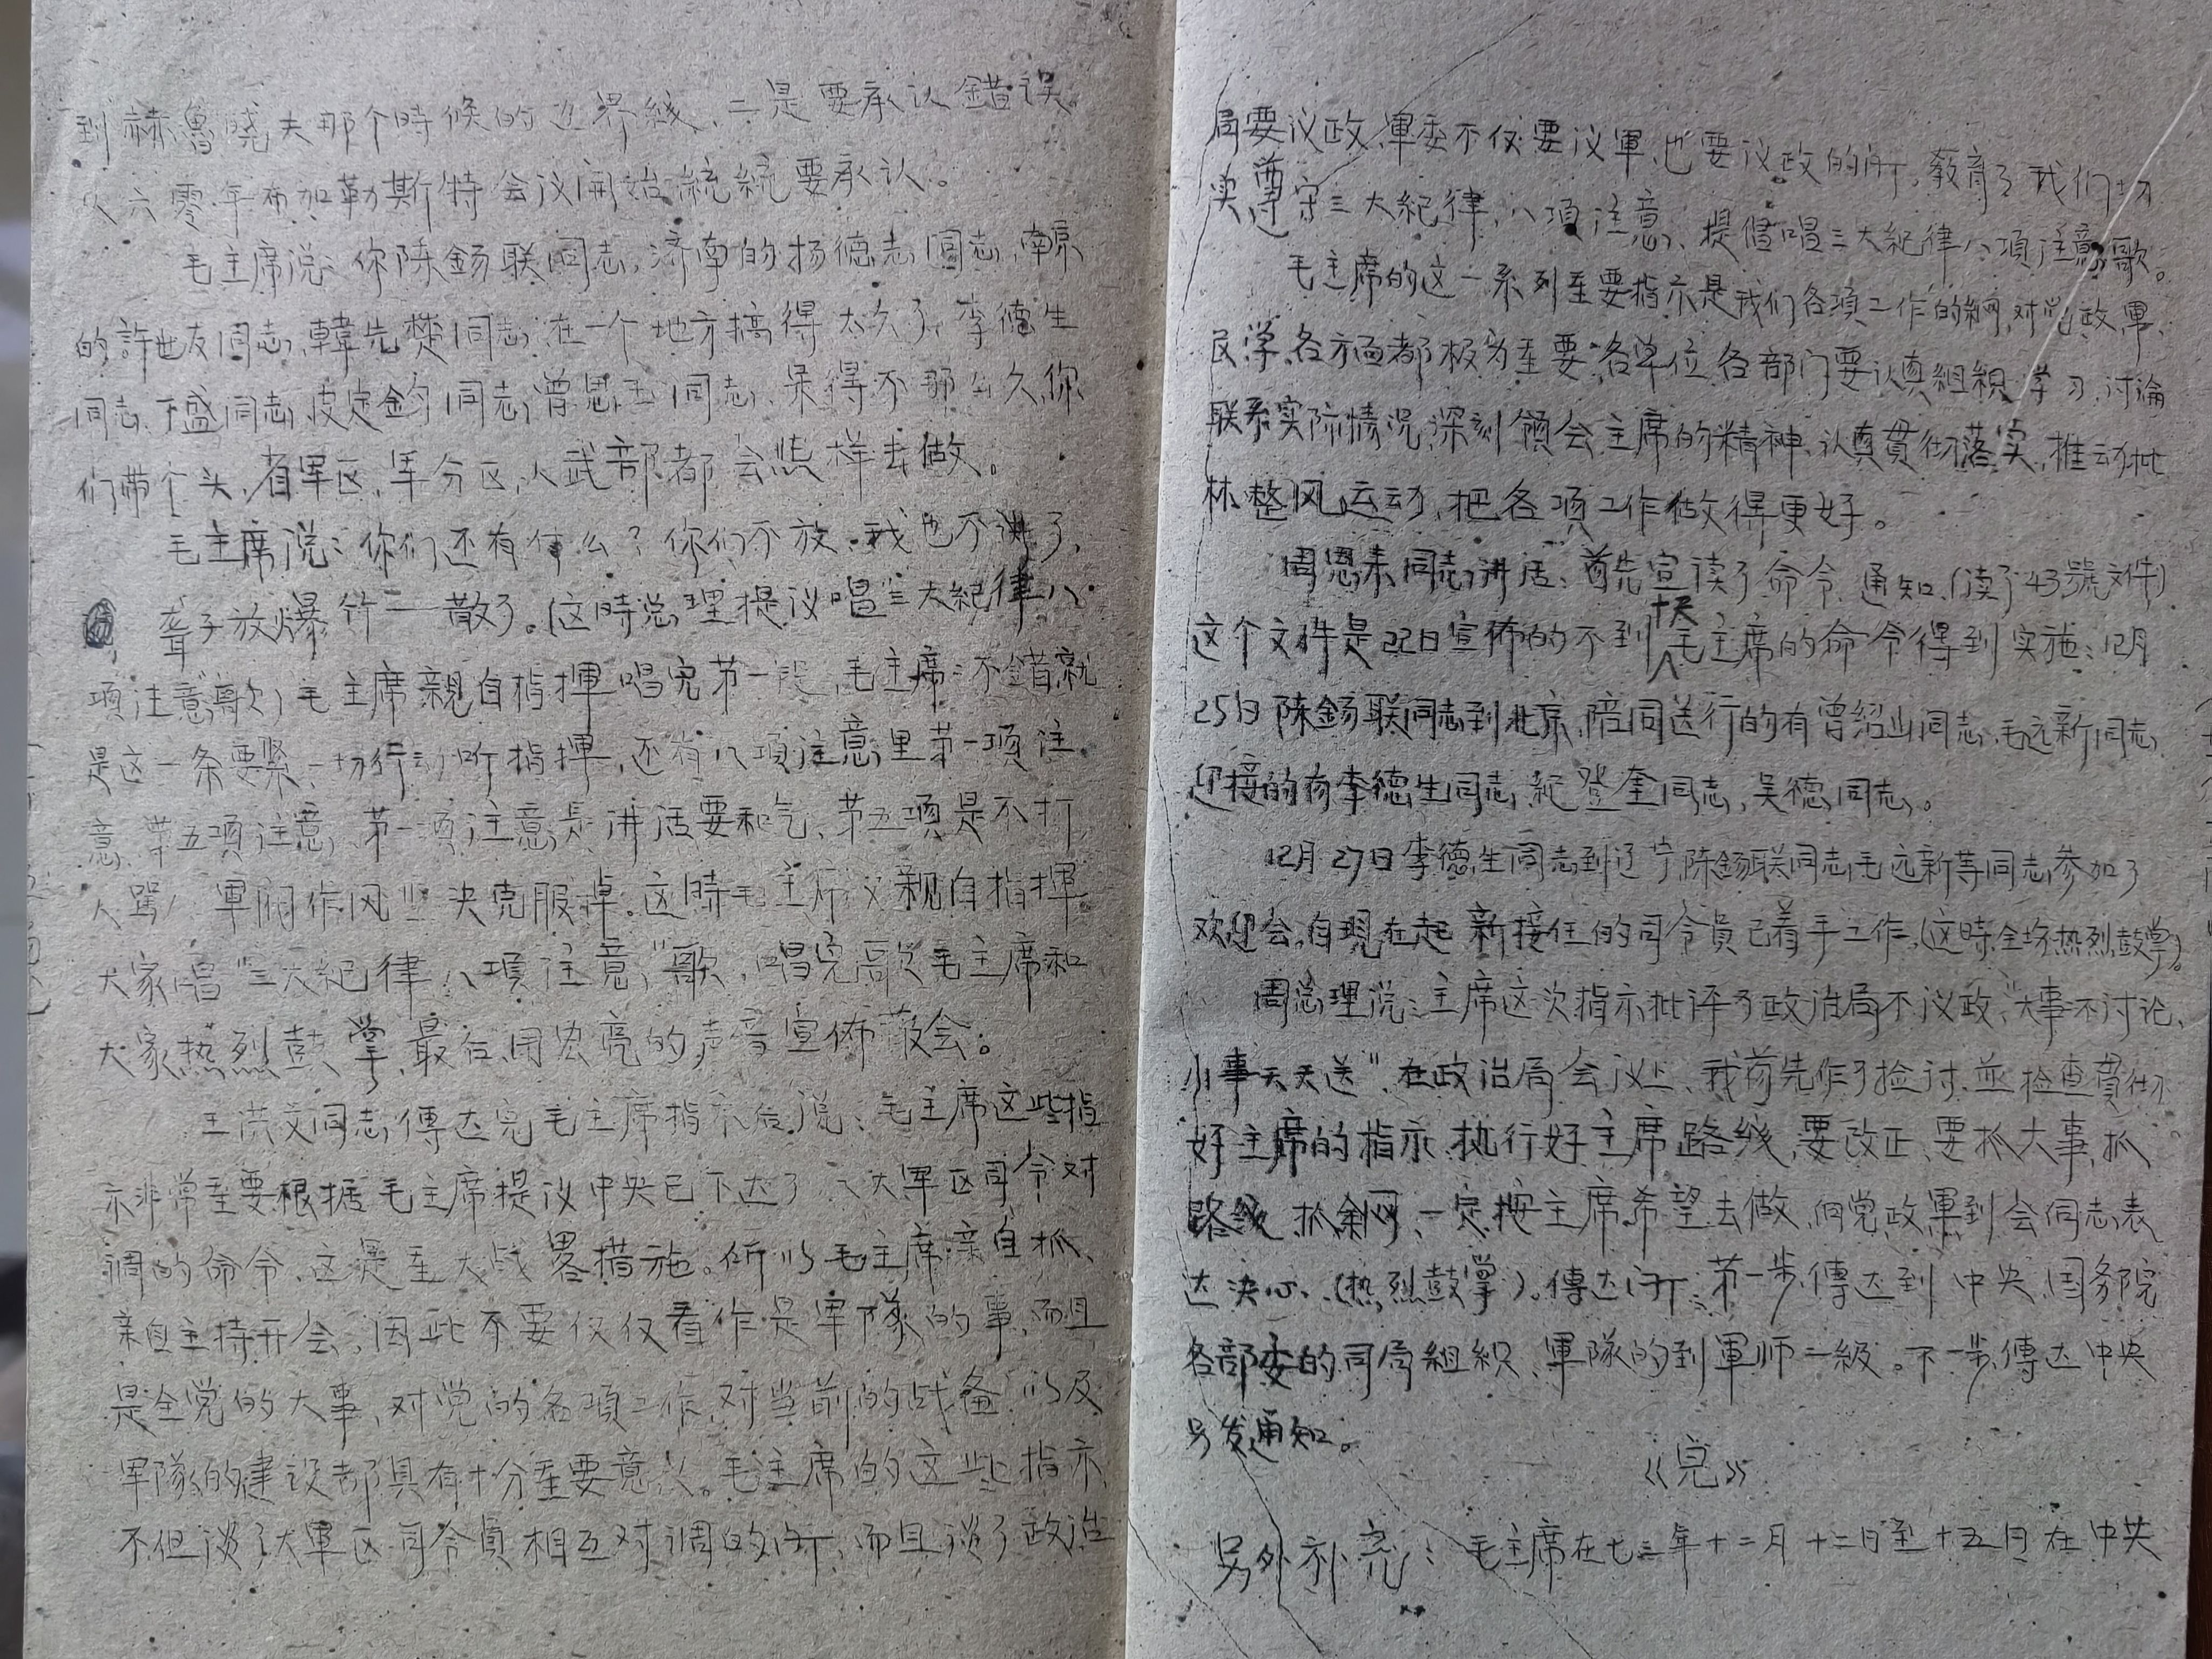 到赫魯晓夫那个時候的边界綫、二是要承认錯误。
从六零年布加勒斯特会议開始統統要承认。
毛主席说：你陈錫联同志，济南的扬德志同志，南京
的許世友同志，韓先楚同志在一个地方搞得太久了，李德生
同志、丁盛同志，皮定鈞同志，曾思玉同志、呆得不那么久，你
们带个头，省軍区，軍分区，人武部都会怎样去做。
毛主席说：你们还有什么？你们不放，我也不讲了，
聋子放爆竹——散了。（这時总理提议唱“三大紀律八
項注意”歌）毛主席親自指揮唱完第一段，毛主席：不錯就
是这一条要緊，一切行动听指揮，还有八項注意里第一項注
意，第五項注意，第一項注意是讲话要和气，第五項是不打
人罵人軍阀作风坚决克服掉。这時毛主席又親自指揮
大家唱“三大紀律八項注意”歌，唱完歌后毛主席和
大家热烈鼓掌，最后用宏亮的声音宣佈散会。
王洪文同志傳达完毛主席指示后，说：毛主席这些指
示非常重要根据毛主席提议中央已下达了八大軍区司令对
调的命令、这是重大战畧措施。所以毛主席亲自抓、
亲自主持开会，因此不要仅仅看作是軍隊的事，而且
是全党的大事，对党的各項工作，对当前的战备以及
軍隊的建设都具有十分重要意义。毛主席的这些指示
不但谈了大軍区司令員相互对调的问，而且谈了政治
局要议政，軍委不仅要议軍，也要议政的问，敎育了我们切
实遵守三大紀律，八項注意，提倡唱三大紀律八項注意歌。
毛主席的这一系列重要指示是我们各項工作的綱，对党政軍、
民学各方面都极为重要各单位各部门要认真組織学习，讨論
联系实际情况，深刻領会主席的精神，认真貫彻落实，推动批
林整风运动，把各項工作做得更好。
周恩来同志讲话：首先宣读了命令、通知（读了43號文件）
这个文件是22日宣佈的不到十天毛主席的命令得到实施；12月
25日陈錫联同志到北京，陪同送行的有曾绍山同志，毛远新同志，
迎接的有李德生同志，紀登奎同志，吴德同志。
12月27日李德生同志到辽宁陈錫联同志毛远新等同志参加了
欢迎会，自現在起新接任的司令員已着手工作，（这時全场热烈鼓掌）。
周总理说：主席这次指示批评了政治局不议政，“大事不讨论，
小事天天送”，在政治局会议上，我首先作了检讨，並检查貫彻
好主席的指示，执行好主席路线，要改正，要抓大事，抓
路线，抓綱，一定按主席希望去做，向党政軍到会同志表
达决心，（热烈鼓掌）。傳达问：第一步傳达到中央、国务院
各部委的司局組織、軍隊的到軍师一級。下一步傳达中央
另发通知。
《完》
另外补充：毛主席在七三年十二月十二日至十五日在中央